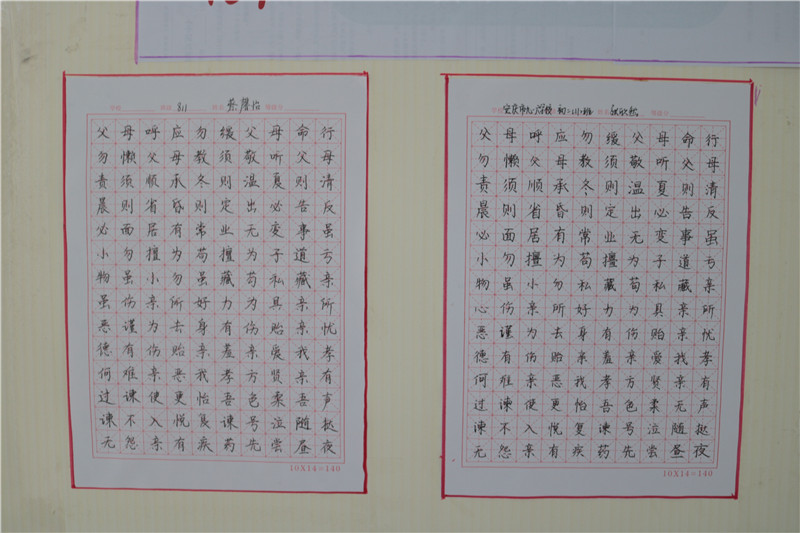 811
父母呼应勿缓父母命行
勿懒父母教须敬听父母
责须顺承冬则温夏则清
晨则省昏则定出必告反
必面居有常业无变事虽
小勿擅为苟擅为子道亏
物虽小勿虽藏苟私藏亲
虽伤亲所好力为具亲所
恶谨为去身有伤贻亲忧
德有伤贻亲羞亲爱我孝
何难亲恶我孝方贤亲有
过谏使更怡吾色柔吾声
谏不入悦复谏号泣随挞
无怨亲有疾药先尝昼夜
10X14=140
父母呼应勿缓父母命行
勿懒父母教须敬听父母
责须顺承冬则温夏则清
晨则省昏则定出必告反
必面居有常业无变事虽
小勿擅为苟擅为子道亏
物虽小勿私藏苟私藏亲
心伤亲所好力为具亲所
恶谨为去身有伤贻亲忧
德有伤贻亲羞亲爱我孝
何难亲恶我孝方贤亲有
过谏使更怡吾色柔无声
谏不入悦复谏号泣随挞
无怨亲有疾药先尝昼夜
10X14=140